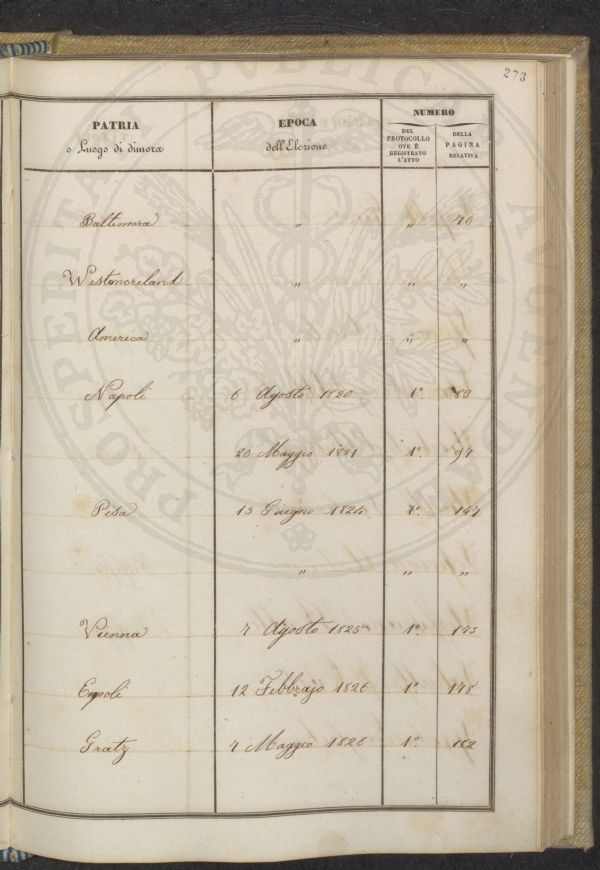 273
PATRIA
o Luogo di dimora
EPOCA
dell'Elezione
NUMERO
DEL
PROTOCOLLO
OVE È
REGISTRATO
L'ATTO
DELLA
PAGINA
RELATIVA
Baltimora „ „ 70
Westmoreland „ „ „
America „ „ „
Napoli 6 Agosto 1820 1.° 88
20 Maggio 1821 1.° 94
Pisa 13 Giugno 1824 1.° 147
„ „ „
Vienna 7 Agosto 1825 1.° 173
Empoli 12 Febbrajo 1826 1.° 178
Gratz 7 Maggio 1826 1.° 182
PUBLICAE
PROSPERITATI
AUGENDAE